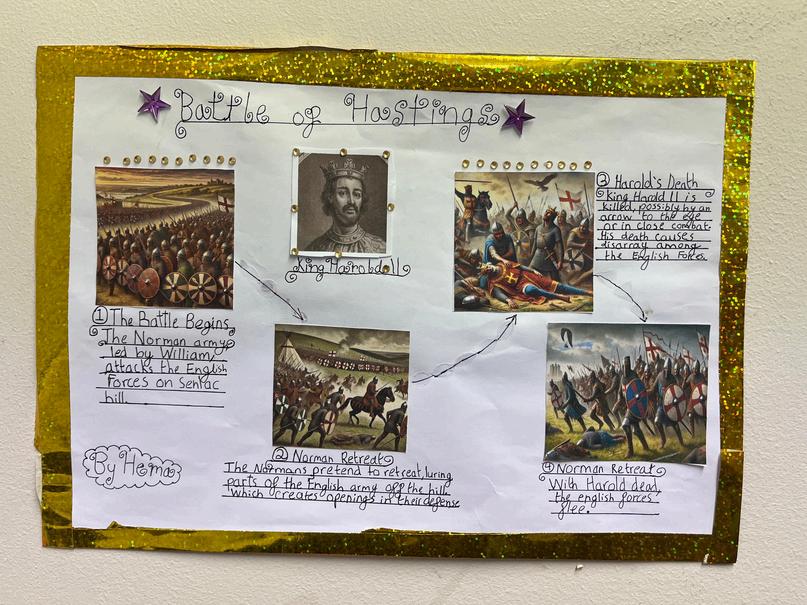 Battle of Hastings
King Harold II
① The Battle Begins
The Norman army
led by William
attacks the English
forces on Senlac
hill.
② Norman Retreat
The Normans pretend to retreat, luring
parts of the English army off the hill,
which creates openings in their defense
③ Harold's Death
King Harold II is
killed, possibly by an
arrow to the eye
or in close combat.
His death causes
disarray among
the English Forces.
④ Norman Retreat
With Harold dead,
the english forces
flee.
By Hema